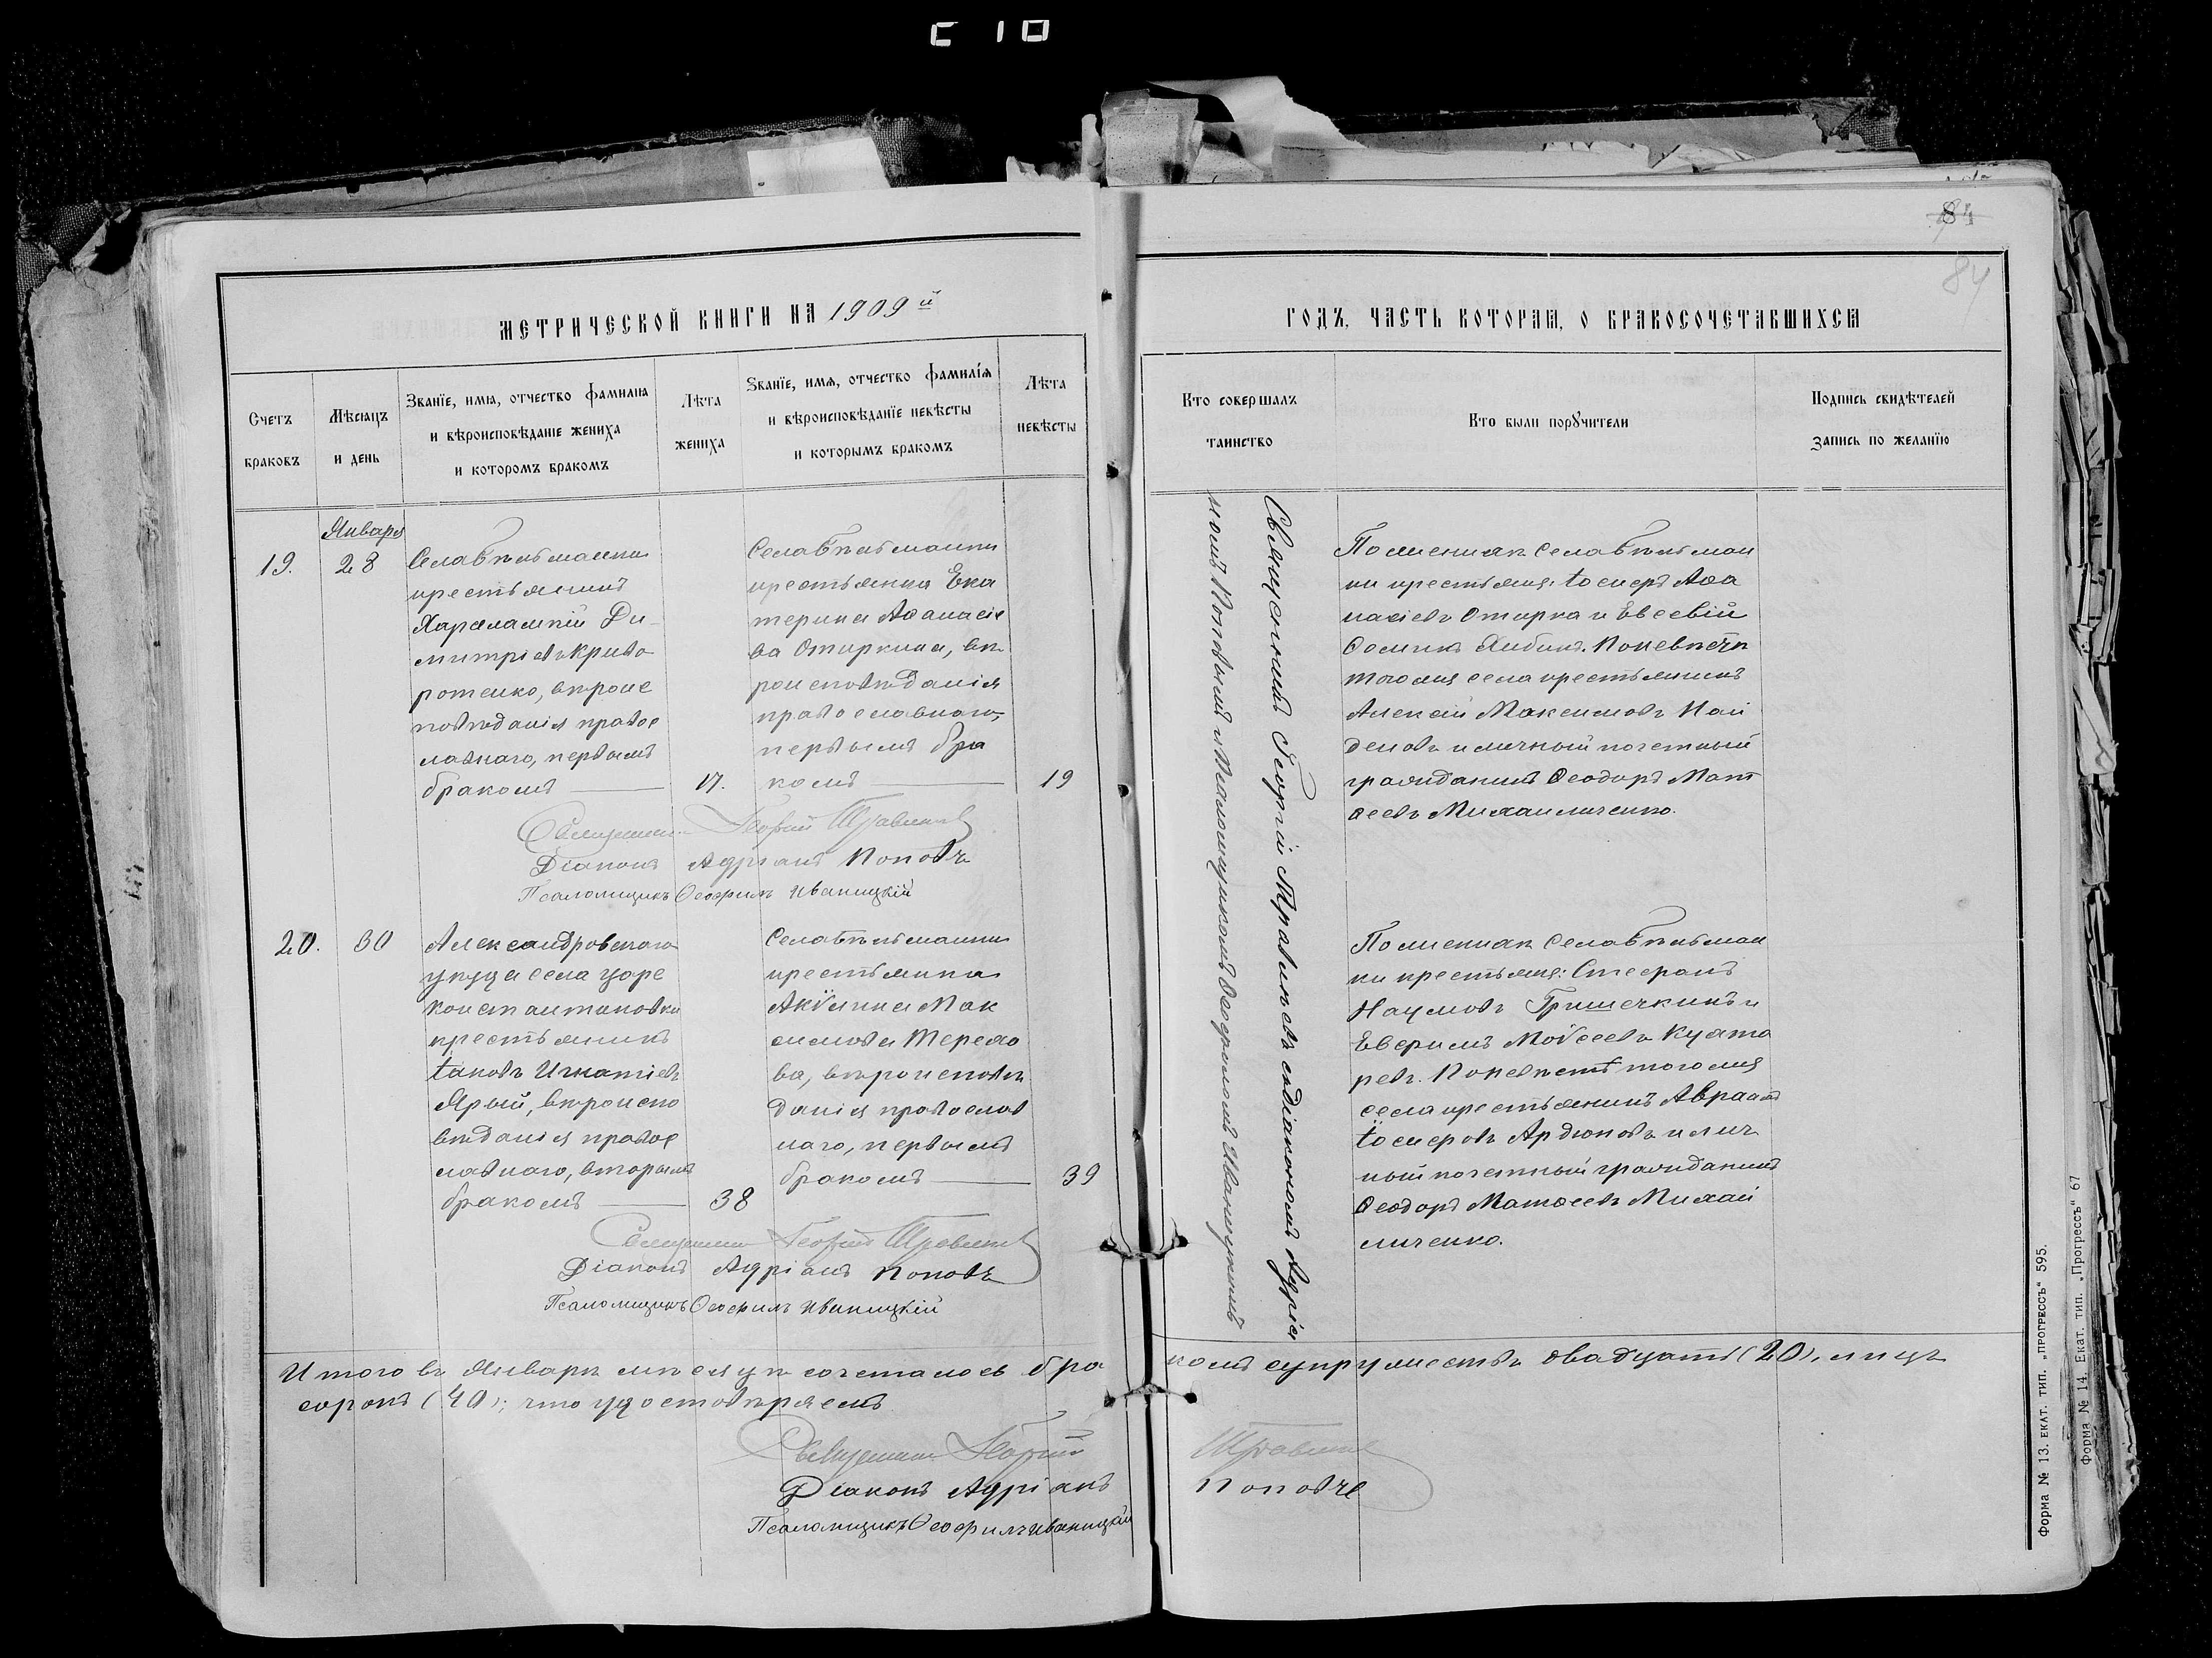 С 10
84
84
МЕТРИЧЕСКОЙ КНИГИ НА 1909й
ГОДЪ, ЧАСТЬ ВТОРАЯ, О БРАКОСОЧЕТАВШИХСЯ
Счетъ
браковъ
Мѣсяцъ
и день
Званіе, имя, отчество фамилия
и вѣроисповѣданіе жениха
и которомъ бракомъ
Лѣта
жениха
Званіе, имя, отчество фамилія
и вѣроисповѣданіе невѣсты
и которымъ бракомъ
Лѣта
невѣсты
Кто совершалъ
таинство
Кто были порꙋчители
Подпись свидѣтелей
запись по желанію
Января
19.
28
Села Бѣльманки
крестьянинъ
Харалампій Ди-
митріевъ Криво
ротенко, вѣроис
повѣданія правос
лавнаго, первымъ
бракомъ
17.
Села Бѣльманки
крестьянка Ека
терина Аѳанасіе
ва Отиркина, вѣ
роисповѣданія
православнаго,
первымъ бра
комъ
19
Священникъ Георгій Травлѣевъ съ діакономъ Адріа
номъ Поповымъ и псаломщикомъ Ѳеофиломъ Иваницкимъ
По женихѣ села Бѣльман
ки крестьяне: Іосифъ Аѳа
насіевъ Отирка и Евсевій
Ѳоминъ Бибикъ. По невѣстѣ
того же села крестьянинъ
Алексѣй Максимовъ Най
деновъ и личный почетный
гражданинъ Ѳеодоръ Мат
ѳеевъ Михайличенко.
Священникъ Георгій
Діаконъ Адріанъ Поповъ
Псаломщикъ Ѳеофилъ Иваницкій
20.
30
Александровскаго
уѣзда села Царе
константиновки
крестьянинъ
Іаковъ Игнатіевъ
Ярый, вѣроиспо
вѣданія правос
лавнаго, вторымъ
бракомъ
38
Села Бѣльманки
крестьянка
Акѵлина Мак
симова Терехо
ва, вѣроисповѣ
данія православ
наго, первымъ
бракомъ
39
По женихѣ села Бѣльман
ки крестьяне: Стефанъ
Наумовъ Гришечкинъ и
Евфимъ Моѵсеевъ Кухта
ревъ. По невѣстѣ того же
села крестьянинъ Авраамъ
Іосифовъ Ардюновъ и лич
ный почетный гражданинъ
Ѳеодоръ Матѳеевъ Михай
личенко.
Священникъ Георгій
Діаконъ Адріанъ Поповъ
Псаломщикъ Ѳеофилъ Иваницкій
Итого въ Январѣ мѣсяцѣ сочеталось бра
комъ супружествъ двадцать (20), лицъ
сорокъ (40); что удостовѣряемъ
Священникъ Георгій
Діаконъ Адріанъ Поповъ
Псаломщикъ Ѳеофилъ Иваницкій
Форма № 13. ЕКАТ. ТИП. „ПРОГРЕССЪ“ 595.
Форма № 14. Екат. тип. „Прогрессъ“ 67